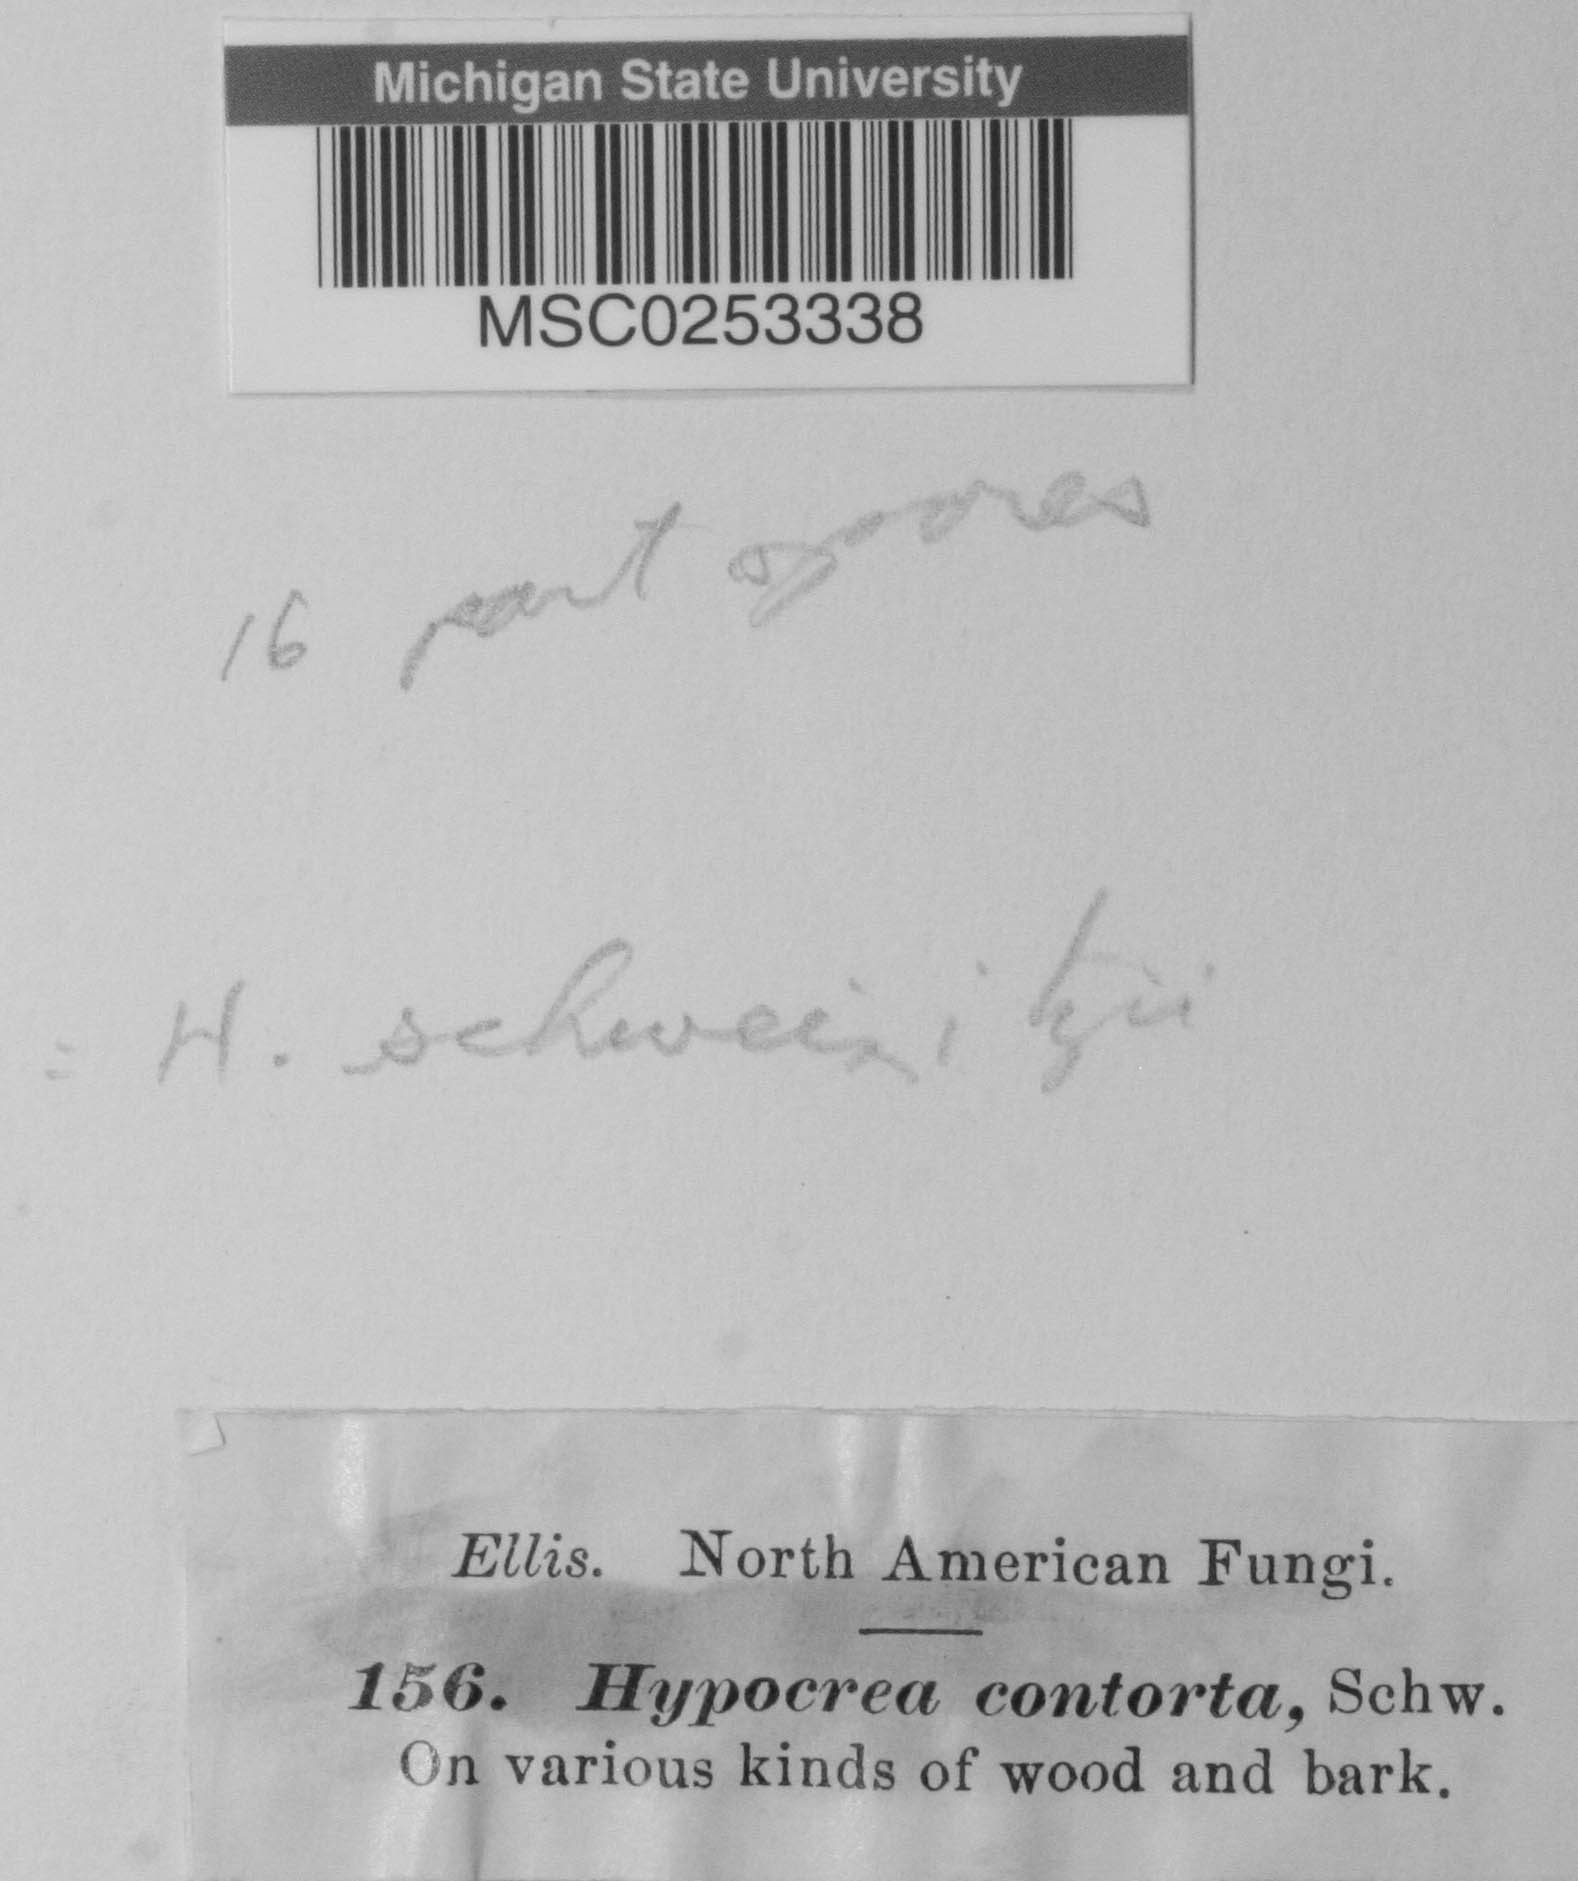 Michigan State University
MSC0253338
16 part spores
= H. schweinitzii
Ellis. North American Fungi.
156. Hypocrea contorta, Schw.
On various kinds of wood and bark.